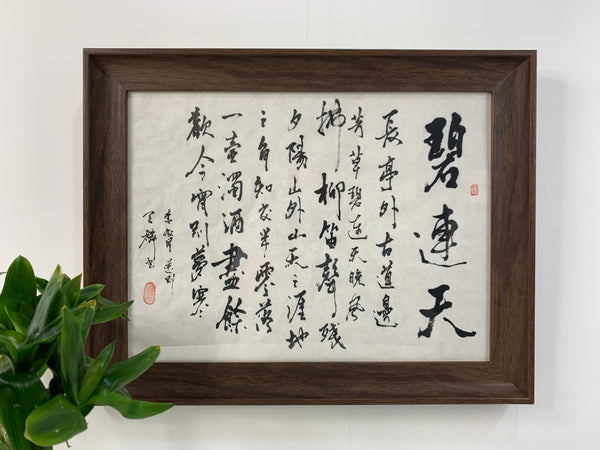 碧連天
長亭外古道邊
芳草碧連天晚風
拂柳笛聲殘
夕陽山外山天之涯地
之角知交半零落
一壺濁酒盡餘
歡今宵別夢寒
李叔同送別